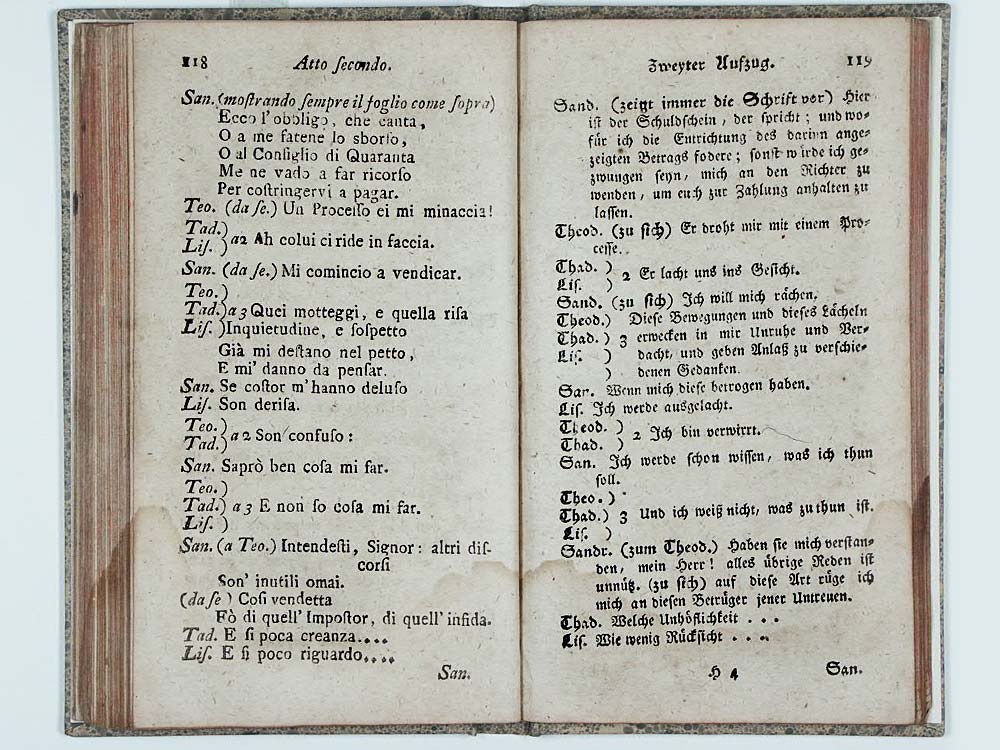 118 Atto secondo.
San. (mostrando sempre il foglio come sopra)
Ecco l'obbligo, che canta,
O a me fatene lo sborso,
O al Consiglio di Quaranta
Me ne vado a far ricorso
Per costringervi a pagar.
Teo. (da se.) Un Processo ei mi minaccia!
Tad.)
Lis. ) a2 Ah colui ci ride in faccia.
San. (da se.) Mi comincio a vendicar.
Teo.)
Tad.) a 3 Quei motteggi, e quella risa
Lis. )Inquietudine, e sospetto
Già mi destano nel petto,
E mi' danno da pensar.
San. Se costor m'hanno deluso
Lis. Son derisa.
Teo.)
Tad.) a 2 Son confuso:
San. Saprò ben cosa mi far.
Teo.)
Tad.) a 3 E non so cosa mi far.
Lis. )
San. (a Teo.) Intendesti, Signor: altri dis-
corsi
Son' inutili omai.
(da se) Così vendetta
Fò di quell' Impostor, di quell' infida.
Tad. E si poca creanza....
Lis. E si poco riguardo....
San.
Zweyter Aufzug. 119
Sand. (zeigt immer die Schrift vor) Hier
ist der Schuldschein, der spricht; und wo-
für ich die Entrichtung des darinn ange-
zeigten Betrags fodere; sonst würde ich ge-
zwungen seyn, mich an den Richter zu
wenden, um euch zur Zahlung anhalten zu
lassen.
Theod. (zu sich) Er droht mir mit einem Pro-
cesse.
Thad. )
Lis. ) 2 Er lacht uns ins Gesicht.
Sand. (zu sich) Ich will mich rächen.
Theod.) Diese Bewegungen und dieses Lächeln
Thad. ) 3 erwecken in mir Unruhe und Ver-
Lis. ) dacht, und geben Anlaß zu verschie-
) denen Gedanken.
San. Wenn mich diese betrogen haben.
Lis. Ich werde ausgelacht.
Theod. )
Thad. ) 2 Ich bin verwirrt.
San. Ich werde schon wissen, was ich thun
soll.
Theo. )
Thad.) 3 Und ich weiß nicht, was zu thun ist.
Lis. )
Sandr. (zum Theod.) Haben sie mich verstan-
den, mein Herr! alles übrige Reden ist
unnütz. (zu sich) auf diese Art rüge ich
mich an diesen Betrüger jener Untreuen.
Thad. Welche Unhöflichkeit . . .
Lis. Wie wenig Rücksicht . . .
H 4 San.